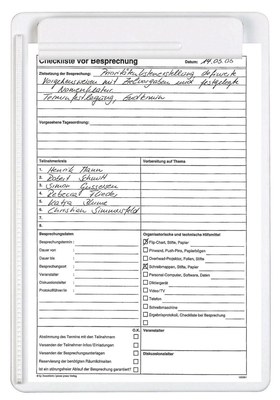 Checkliste vor Besprechung Datum: 19.05.05
Zielsetzung der Besprechung: Prioritätenlistenerstellung
Vorgehensweisen mit Zeitvorgaben und festgelegte
Nomenklatur
Terminfestlegung,
Vorgesehene Tagesordnung:
Teilnehmerkreis Vorbereitung auf Thema
1. Henrik Mann
2. Robert Schmitt
3. Simon
4. Rebecca
5. Katja Blume
6. Christian Simmersfeld
7.
8.
Besprechungsdaten Organisatorische und technische Hilfsmittel
Besprechungstermin : Flip-Chart, Stifte, Papier
Dauer von : Pinwand, Push-Pins, Papierbögen
Dauer bis : Overhead-Projektor, Folien, Stifte
Besprechungsort : Schreibmappen, Stifte, Papier
Veranstalter : Personal-Computer, Software, Daten
Diskussionsleiter : Diktiergerät
Protokollführer/in : Video/TV
Telefon
Schreibmaschine
Ergebnisprotokoll, Checkliste bei Besprechung
O.K. Veranstalter
Abstimmung des Termins mit den Teilnehmern
Versenden der Teilnehmer-Infos/Einladungen
Versenden der Besprechungsunterlagen
Reservierung der benötigten Räumlichkeiten Diskussionsleiter
Ist ein störungsfreier Ablauf der Besprechung garantiert?